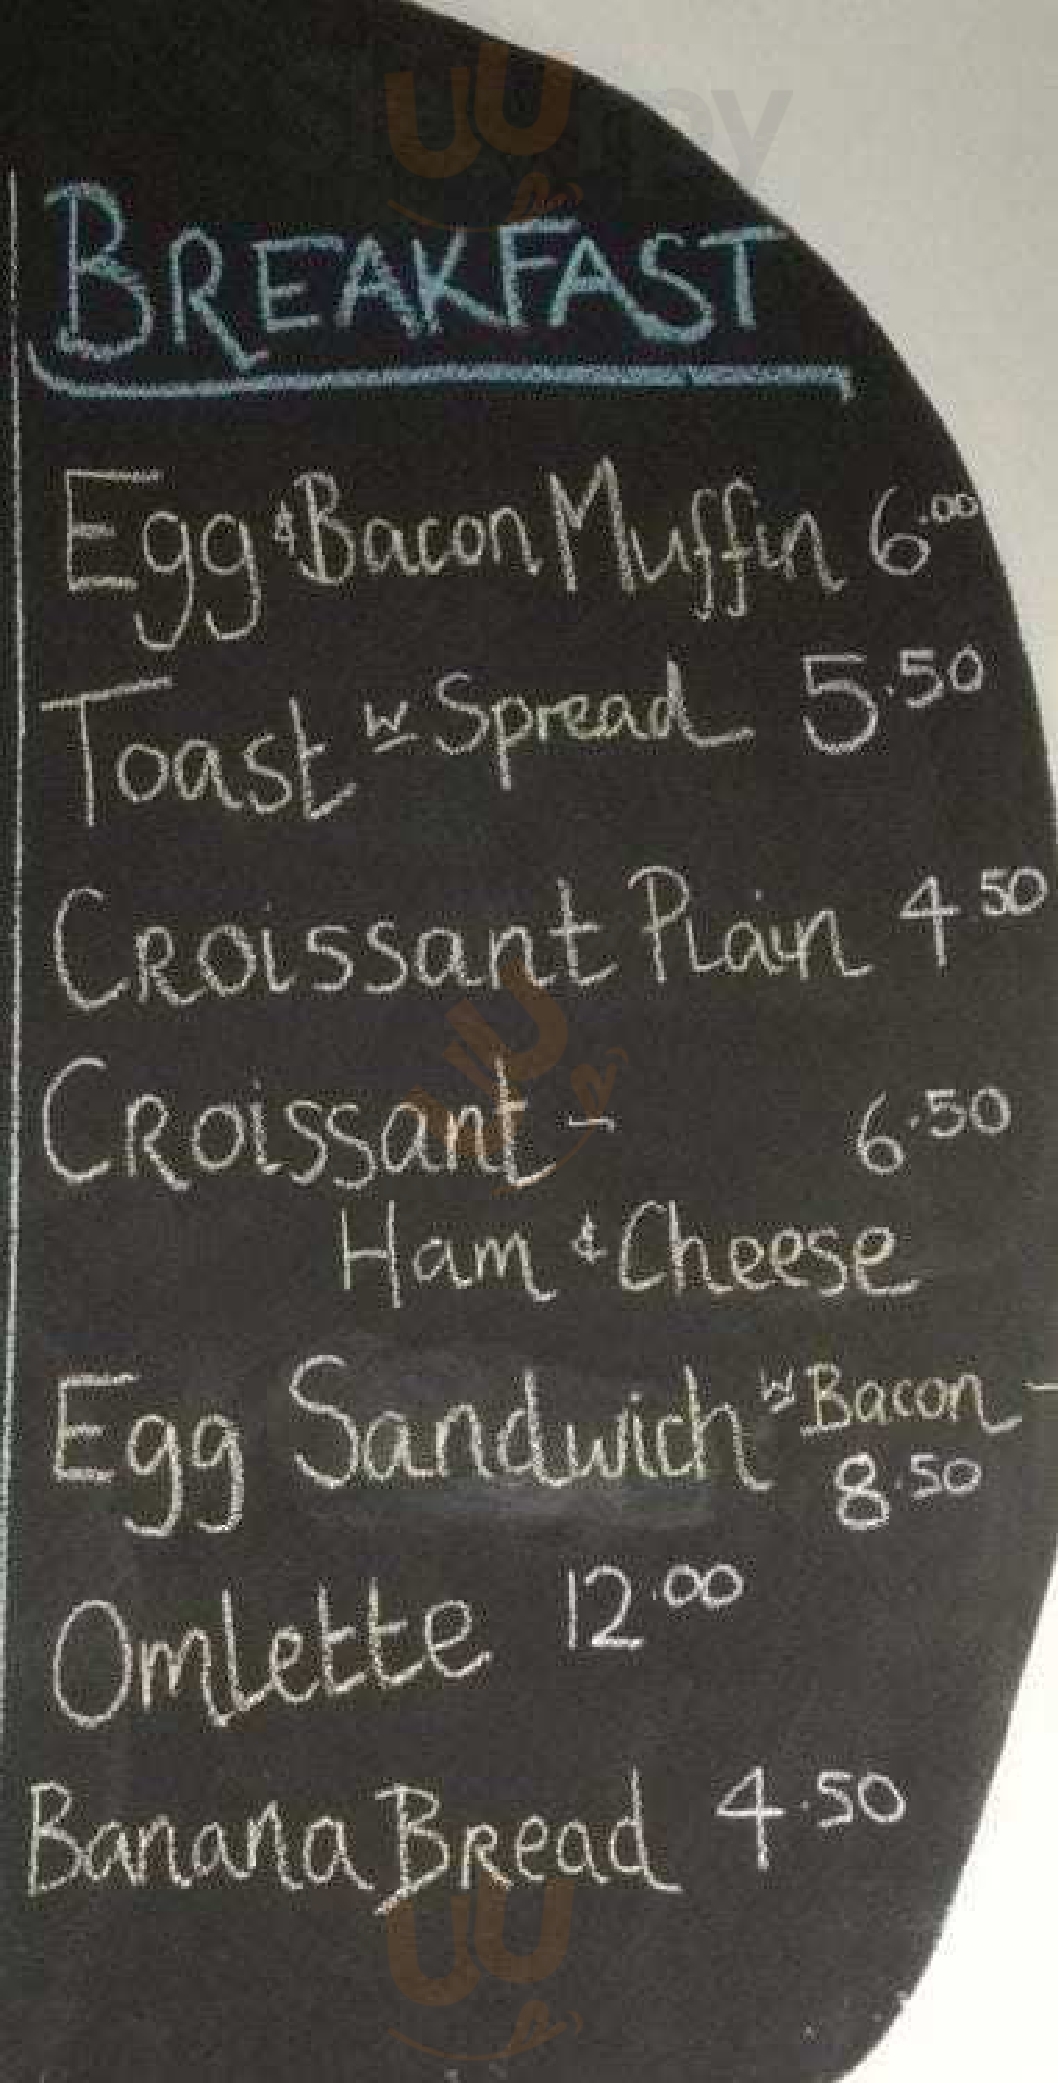 BREAKFAST
Egg & Bacon Muffin 6.00
Toast w Spread 5.50
Croissant Plain 4 50
Croissant - 6.50
Ham & Cheese
Egg Sandwich w Bacon -
8.50
Omlette 12.00
Banana Bread 4.50